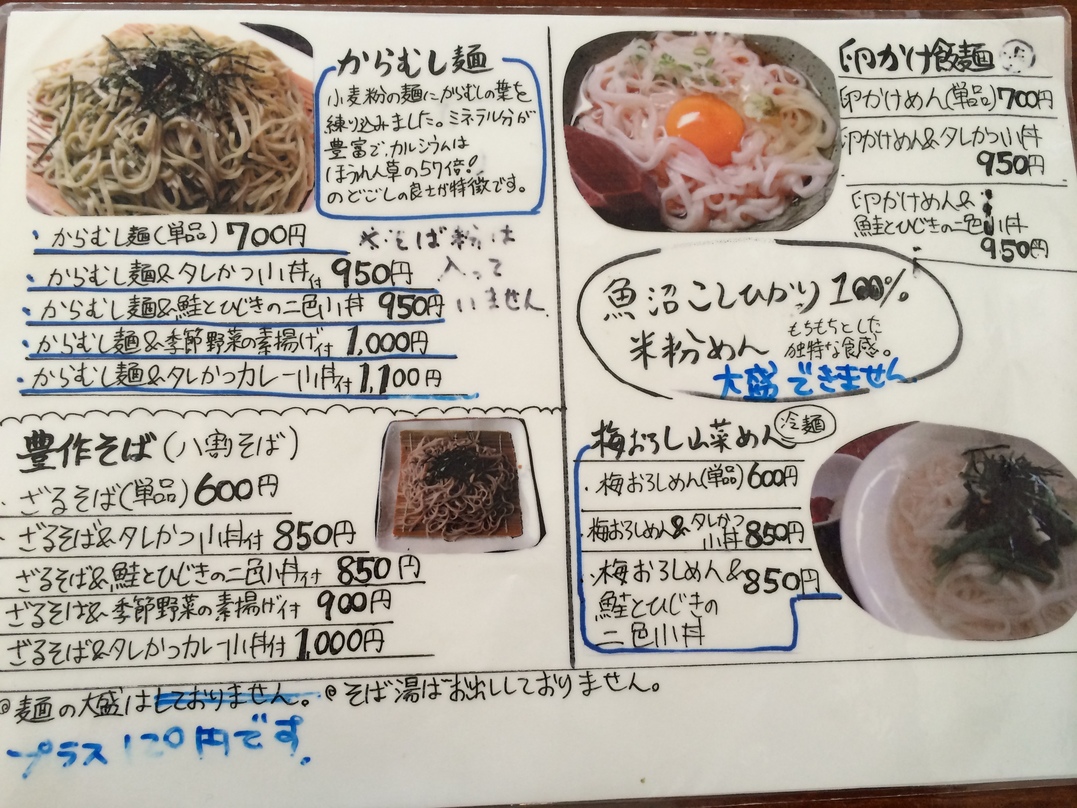 からむし麺
小麦粉の麺にからむしの葉を
練り込みました。ミネラル分が
豊富で、カルシウムは
ほうれん草の57倍!
のどごしの良さが特徴です。
・からむし麺(単品) 700円
・からむし麺&タレかつ小丼付 950円
・からむし麺&鮭とひじきの二色小丼 950円
・からむし麺&季節野菜の素揚げ付 1,000円
・からむし麺&タレかつカレー小丼付 1,100円
※そば粉は
入って
いません
豊作そば(八割そば)
・ざるそば(単品) 600円
・ざるそば&タレかつ小丼付 850円
ざるそば&鮭とひじきの二色小丼付 850円
ざるそば&季節野菜の素揚げ付 900円
ざるそば&タレかつカレー小丼付 1,000円
卵かけ飯麺
卵かけめん(単品) 700円
卵かけめん&タレかつ小丼
950円
卵かけめん&
鮭とひじきの二色小丼
950円
魚沼こしひかり100%
米粉めん
もちもちとした
独特な食感。
大盛できません
梅おろし山菜めん 冷麺
・梅おろしめん(単品) 600円
・梅おろしめん&タレかつ
小丼 850円
・梅おろしめん& 850円
鮭とひじきの
二色小丼
@麺の大盛はしておりません。@そば湯はお出ししておりません。
プラス120円です。